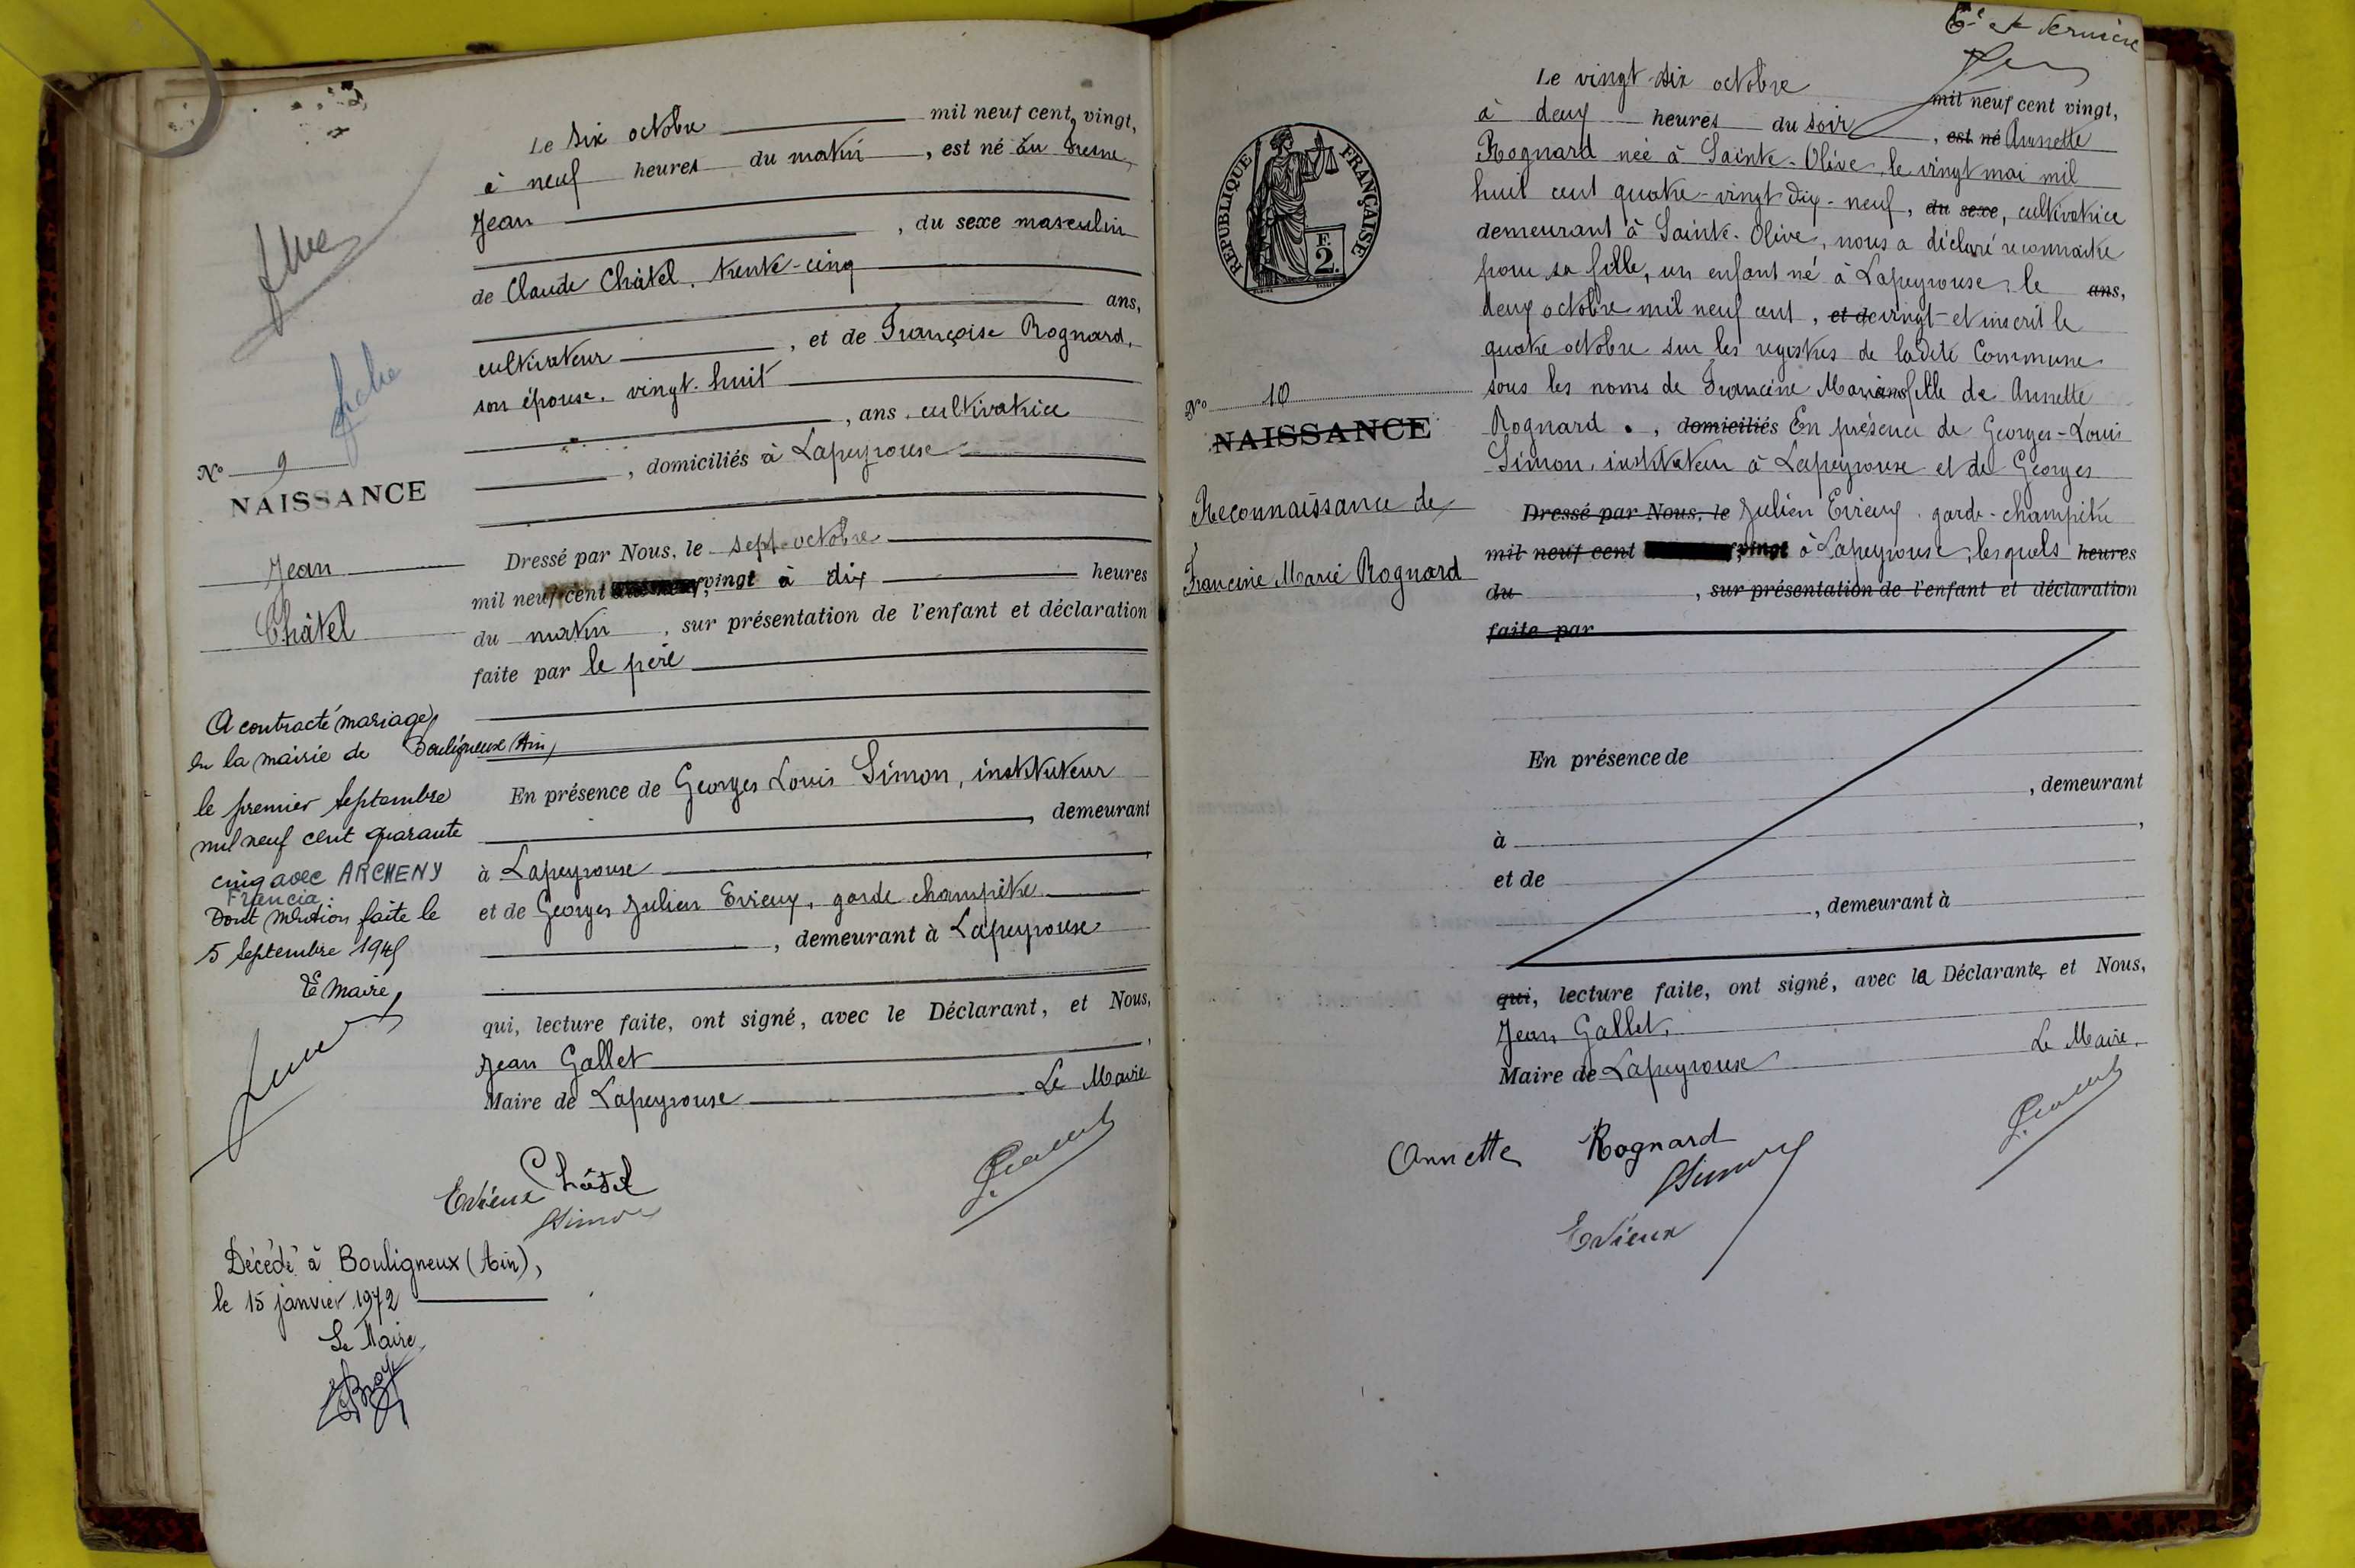 Le six octobre mil neuf cent vingt,
à neuf heures du matin, est né au Fresne,
Jean
, du sexe masculin
de Claude Châtel, trente-cinq
ans,
cultivateur, et de Françoise Rognard,
son épouse, vingt-huit
, ans, cultivatrice
, domiciliés à Lapeyrouse
Dressé par Nous, le sept octobre
mil neuf cent vingt à dix heures
du matin, sur présentation de l'enfant et déclaration
faite par le père
En présence de Georges Louis Simon, instituteur
, demeurant
à Lapeyrouse
et de Georges Julien Evieux, garde champêtre
, demeurant à Lapeyrouse
qui, lecture faite, ont signé, avec le Déclarant, et Nous,
Jean Gallet
Maire de Lapeyrouse Le Maire
Châtel
Evieux
Simon
fiche
N° 9
NAISSANCE
Jean
Châtel
A contracté mariage
en la mairie de Bouligneux (Ain)
le premier septembre
mil neuf cent quarante
cinq avec ARCHENY
Francia
Dont mention faite le
5 Septembre 1945
Le Maire,
Décédé à Bouligneux (Ain),
le 15 janvier 1972
Le Maire
6e et dernière
Le vingt-six octobre mil neuf cent vingt,
à deux heures du soir, est né Annette
Rognard née à Sainte-Olive, le vingt mai mil
huit cent quatre-vingt dix-neuf, du sexe, cultivatrice
demeurant à Sainte-Olive, nous a déclaré reconnaître
pour sa fille, un enfant né à Lapeyrouse, le ans,
deux octobre mil neuf cent, et de vingt et inscrit le
quatre octobre sur les registres de ladite Commune
sous les noms de Francine Marie ans fille de Annette
Rognard. , domiciliés En présence de Georges-Louis
Simon, instituteur à Lapeyrouse et de Georges
Dressé par Nous, le Julien Evieux, garde-champêtre
mil neuf cent vingt à Lapeyrouse, lesquels heures
du , sur présentation de l'enfant et déclaration
faite par
En présence de
, demeurant
à ,
et de
, demeurant à
qui, lecture faite, ont signé, avec la Déclarante, et Nous,
Jean Gallet,
Maire de Lapeyrouse Le Maire.
Annette Rognard
Simon
Evieux
RÉPUBLIQUE FRANÇAISE
F.
2.
N° 10
NAISSANCE
Reconnaissance de
Francine Marie Rognard